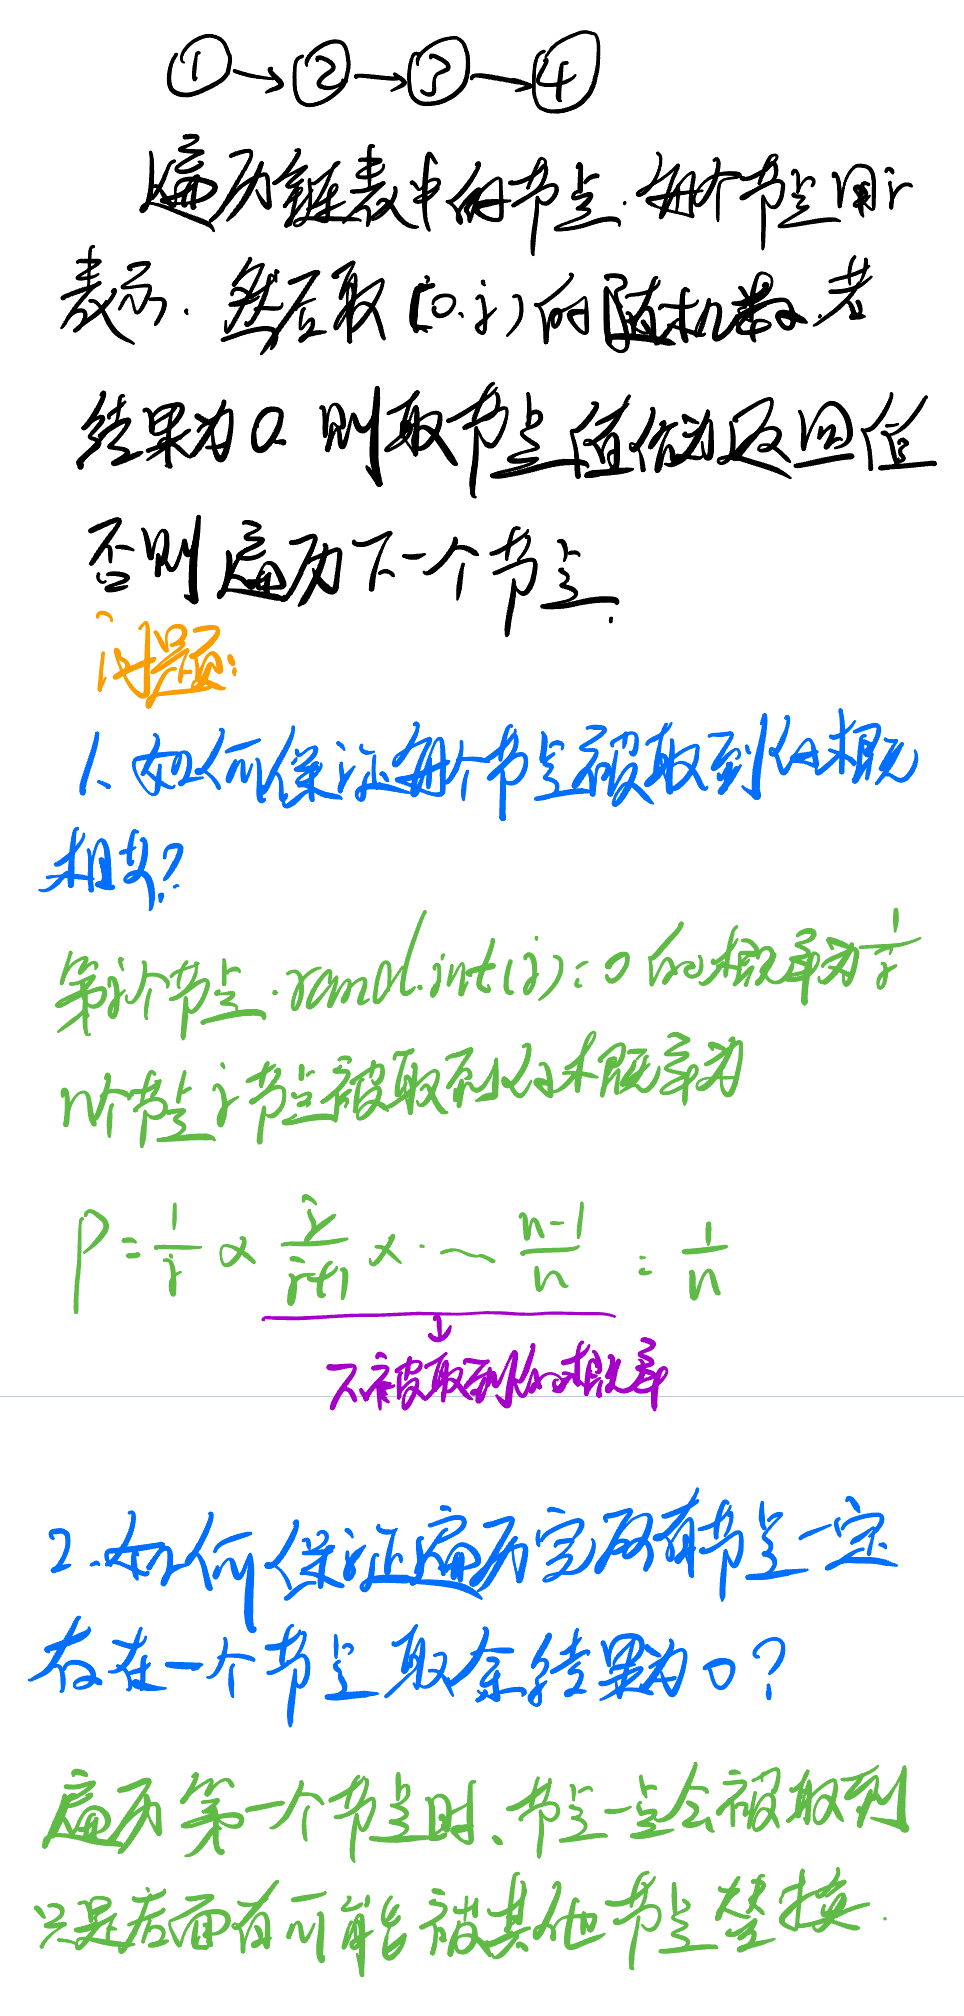 ① → ② → ③ → ④
遍历链表中的节点.每个节点用i
表示.然后取[0,i)的随机数.若
结果为0.则取节点值作为返回值
否则遍历下一个节点.
问题:
1、如何保证每个节点被取到的概况
相	同?
第i个节点.rand.int(i)=0的概率为 1/i
n个节点i节点被取到的概率为
P = 1/i × i/i+1 × · ~ n-1/n = 1/n
不被取到的概率
2.如何保证遍历完所有节点一定
存在一个节点取余结果为0?
遍历第一个节点时、节点一定会被取到
只是后面有可能被其他节点替换.